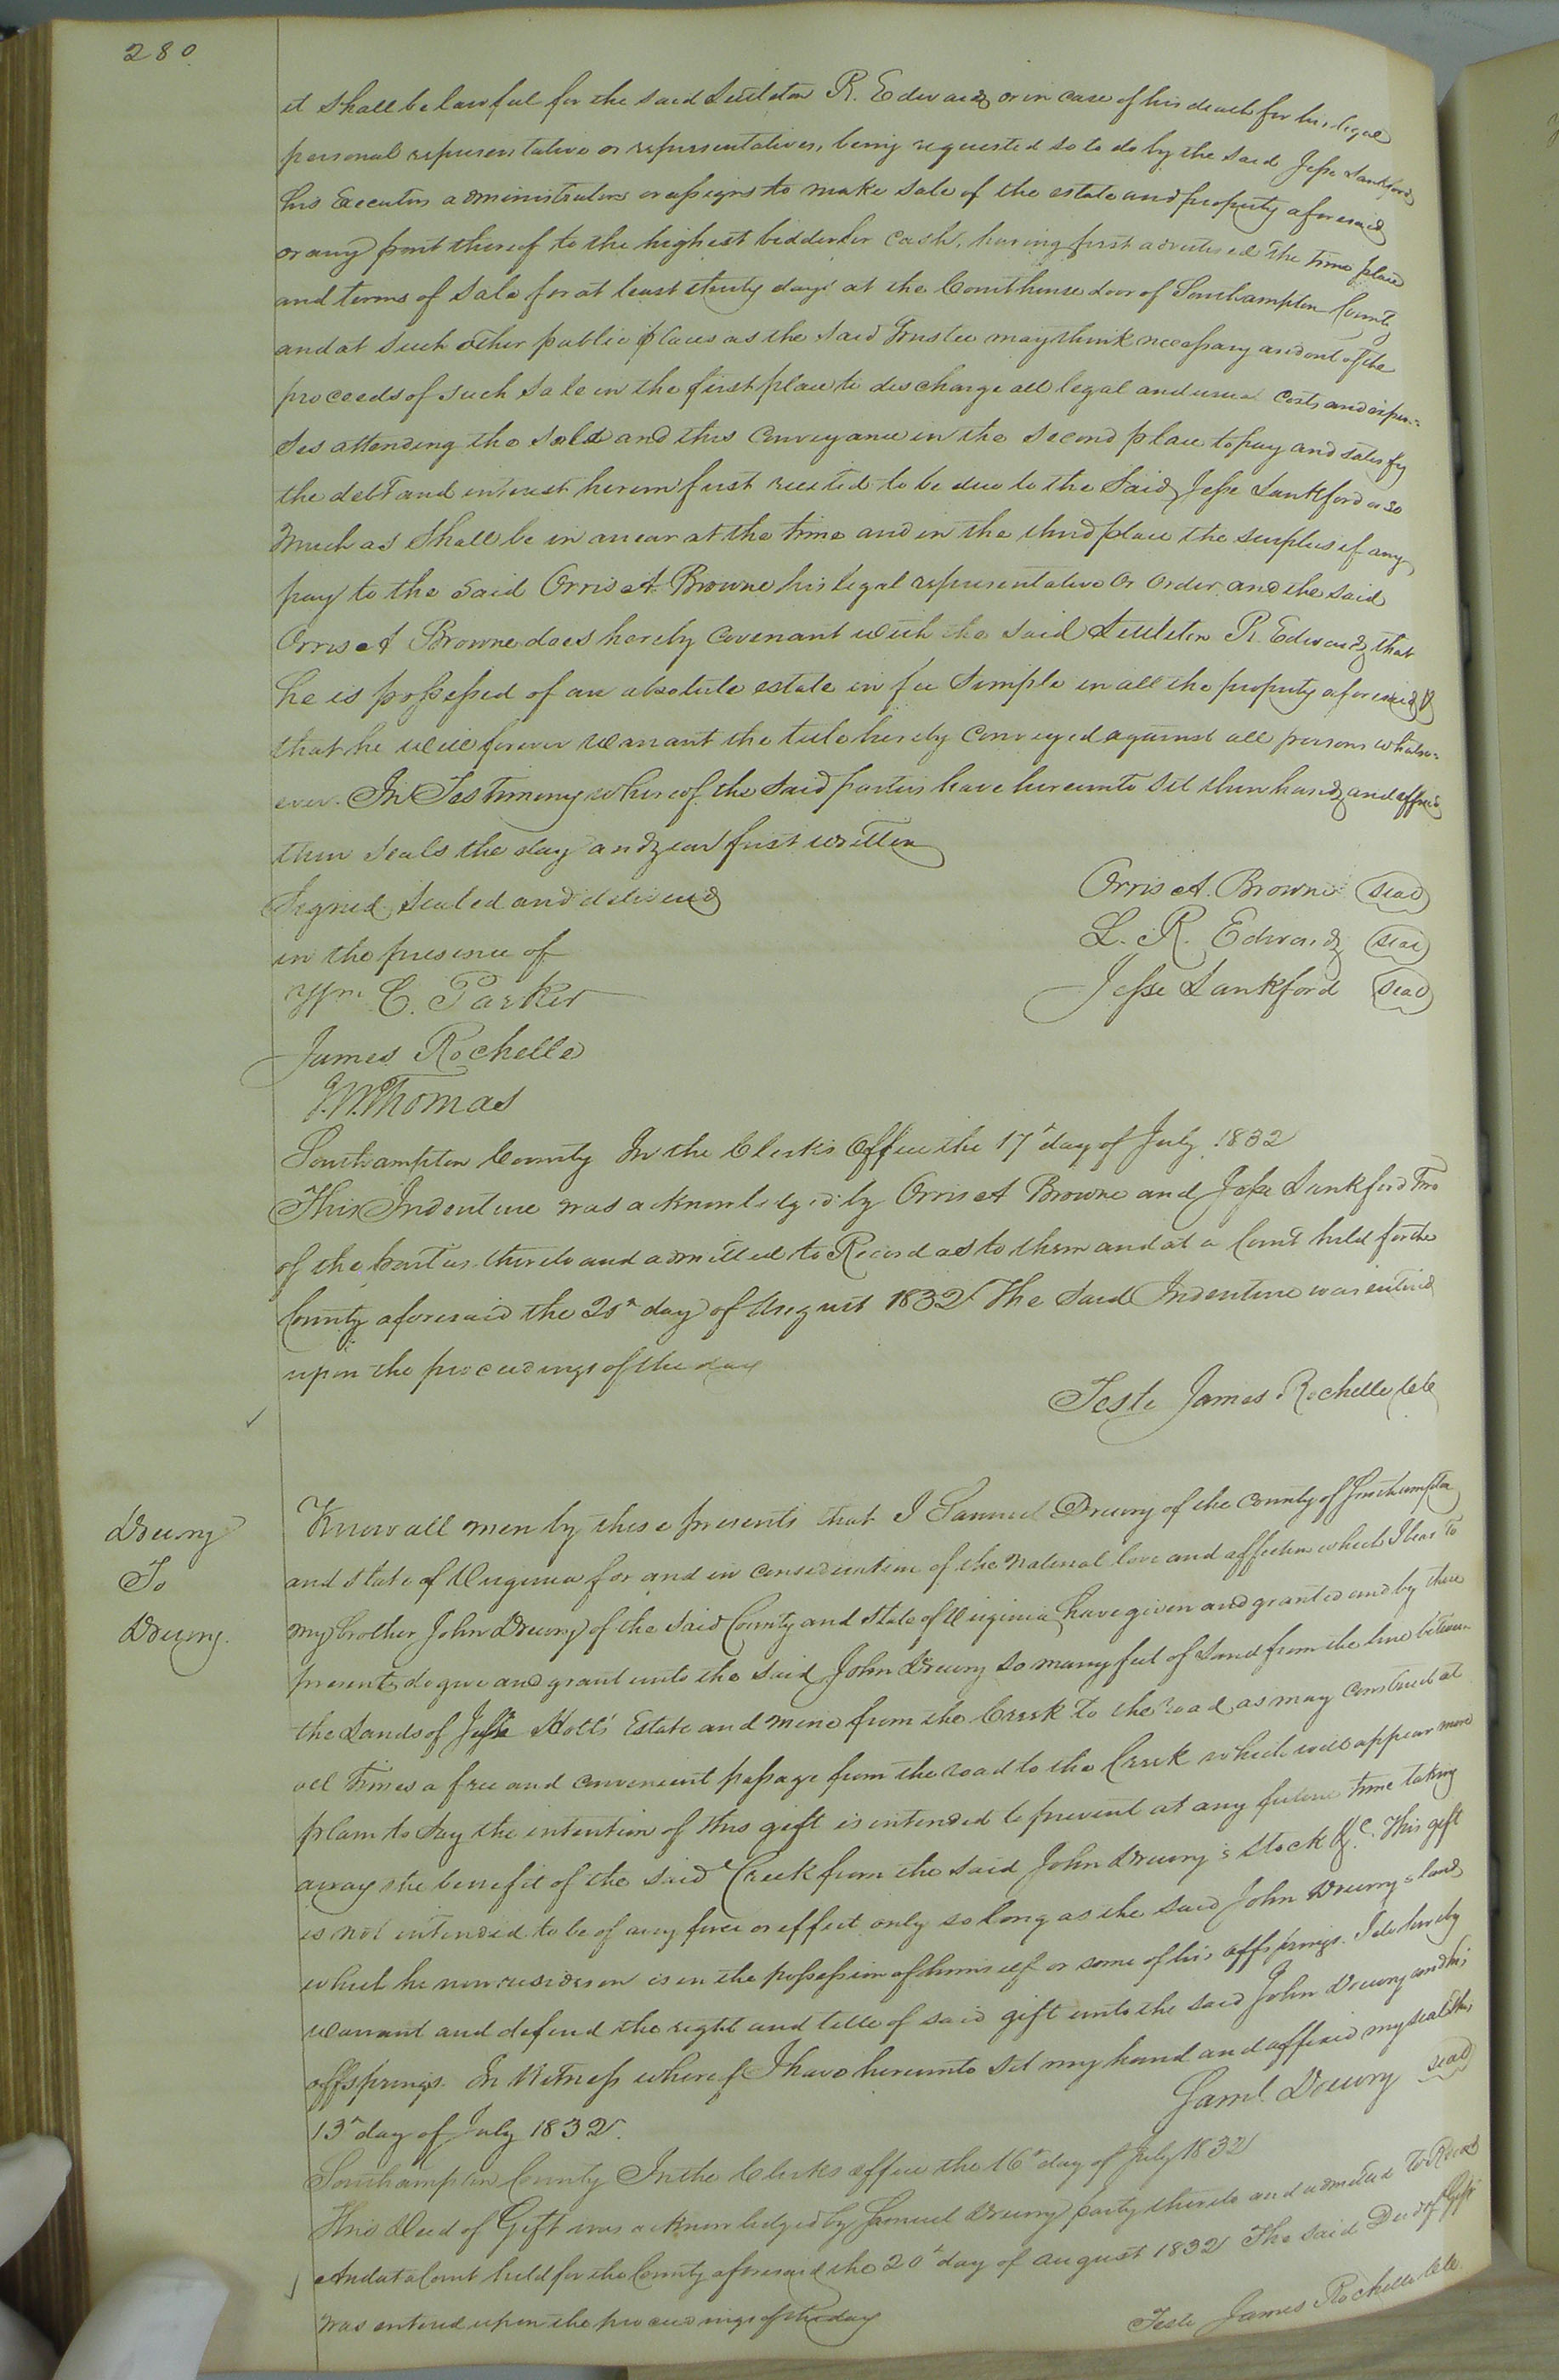 280
it shall be lawful for the said Littleton R. Edwards or in case of his death for his legal
personal representative or representatives, being requested so to do by the said Jesse Lankford
his Executors administrators or assigns to make sale of the estate and property aforesaid
or any part thereof to the highest bidder for cash, having first advertised the time place
and terms of sale for at least thirty days at the Courthouse door of Southampton County
and at such other public places as the said Trustee may think necessary and out of the
proceeds of such sale in the first place to discharge all legal and usual costs and expen=
ses attending the sale and this conveyance in the second place to pay and satisfy
the debt and interest herein first recited to be due to the Said Jesse Lankford or so
much as shall be in arrear at the time and in the third place the surplus if any
pay to the said Orris A. Browne his legal representative or order and the said
Orris A Browne does hereby covenant with the said Littleton R. Edwards that
he is possessed of an absolute estate in fee simple in all the property aforesaid &
that he will forever warrant the title hereby conveyed against all persons whatso=
ever. In Testimony whereof the said parties have hereunto set their hands and affixed
their seals the day and year first written
Signed Sealed and delivered
in the presence of
Wm C. Parker
James Rochelle
J. W. Thomas
Orris A. Browne seal
L. R. Edwards seal
Jesse Lankford seal
Southampton County In the Clerks Office the 17th day of July 1832
This Indenture was acknowledged by Orris A Browne and Jesse Lankford Two
of the parties thereto and admitted to Record as to them and at a Court held for the
County aforesaid the 20th day of August 1832 The said Indenture was entered
upon the proceedings of the day
Teste James Rochelle Clk
Drewry
To
Drewry.
Know all men by these presents that I Samuel Drewry of the County of Southampton
and State of Virginia for and in consideration of the natural love and affection which I bear to
my brother John Drewry of the said County and State of Virginia have given and granted and by these
presents do give and grant unto the said John Drewry so many feet of Land from the line between
the Lands of Jesse Holts Estate and mine from the Creek to the road as may construct at
all times a free and convenient passage from the road to the Creek which will appear more
plain to say the intention of this gift is intended to prevent at any future time taking
away the benefit of the said Creek from the said John Drewry's Stock &c. This gift
is not intended to be of any force or effect only so long as the said John Drewry's land
which he now resides on is in the possession of himself or some of his offsprings. I do hereby
warrant and defend the right and title of said gift unto the said John Drewry and his
offsprings. In Witness whereof I have hereunto set my hand and affixed my seal this
13th day of July 1832.
Saml. Drewry seal
Southampton County In the Clerks office the 16th day of July 1832
This Deed of Gift was acknowledged by Samuel Drewry party thereto and admitted to Record
And at a Court held for the County aforesaid the 20th day of August 1832 The said Deed of Gift
was entered upon the proceedings of the day
Teste James Rochelle Clk.